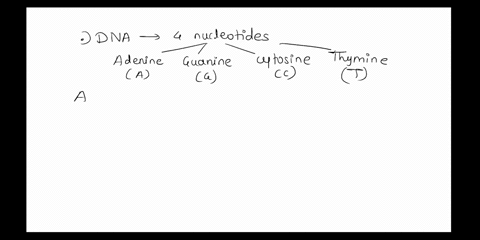 .) DNA → 4 nucleotides
Adenine Guanine Cytosine Thymine
(A) (G) (C) (T)
A